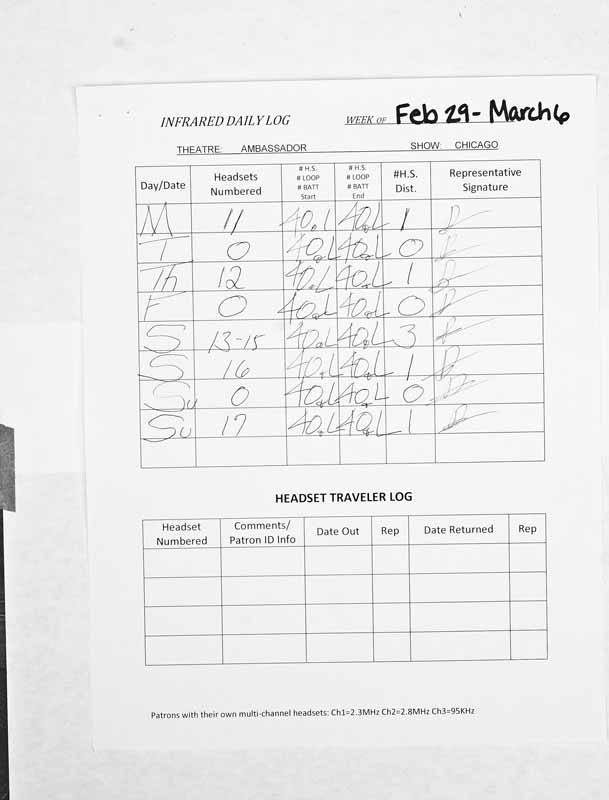 INFRARED DAILY LOG WEEK OF Feb 29 - March 6
THEATRE: AMBASSADOR SHOW: CHICAGO
Day/Date Headsets Numbered # H.S. # LOOP # BATT Start # H.S. # LOOP # BATT End #H.S. Dist. Representative Signature
M 11 40 40 1
T 0 40 40 0
Th 12 40 40 1
F 0 40 40 0
S 13-15 40 40 3
S 16 40 40 1
Su 0 40 40 0
Su 17 40 40 1
HEADSET TRAVELER LOG
Headset Numbered Comments/ Patron ID Info Date Out Rep Date Returned Rep
Patrons with their own multi-channel headsets: Ch1=2.3MHz Ch2=2.8MHz Ch3=95KHz